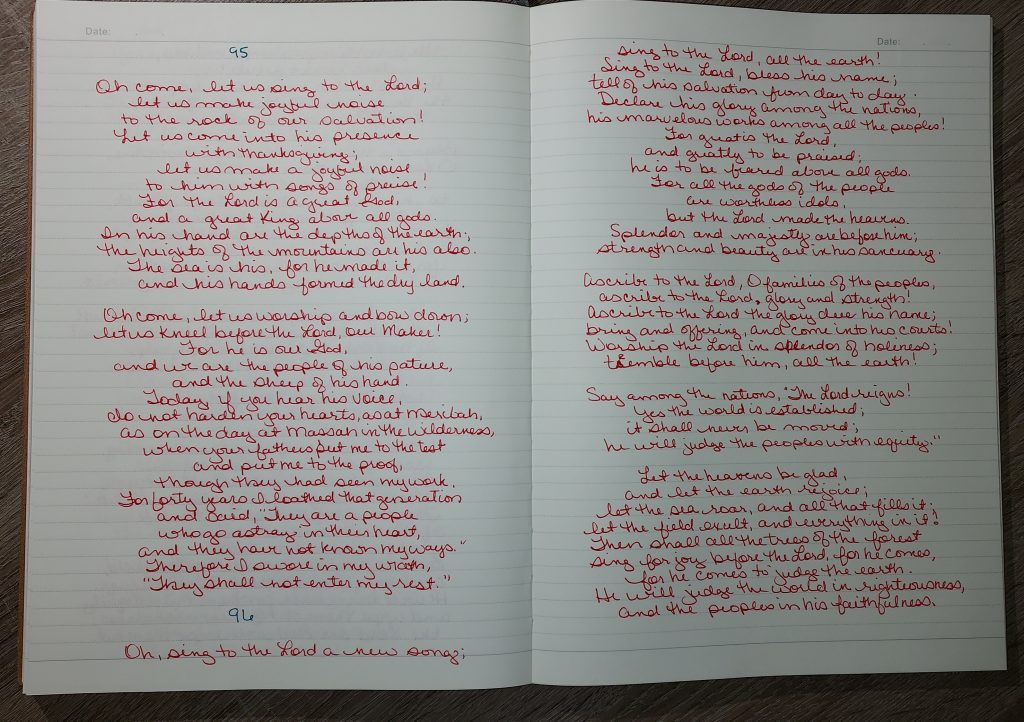 Date:
95
Oh come, let us sing to the Lord;
let us make joyful noise
to the rock of our salvation!
Let us come into his presence
with thanksgiving;
let us make a joyful noise
to him with songs of praise!
For the Lord is a great God,
and a great King above all gods.
In his hand are the depths of the earth;
the heights of the mountains are his also.
The sea is his, for he made it,
and his hands formed the dry land.
Oh come, let us worship and bow down;
let us kneel before the Lord, our Maker!
For he is our God,
and we are the people of his pature,
and the sheep of his hand.
Today if you hear his voice,
do not harden your hearts, as at Meribah,
as on the day at Massah in the wilderness,
when your fathers put me to the test
and put me to the proof,
though they had seen my work.
For forty years I loathed that generation
and said, "They are a people
who go astray in their heart,
and they have not known my ways."
Therefore I swore in my wrath,
"They shall not enter my rest."
96
Oh, sing to the Lord a new song;
Date:
sing to the Lord, all the earth!
Sing to the Lord, bless his name;
tell of his salvation from day to day.
Declare his glory among the nations,
his marvelous works among all the peoples!
For great is the Lord,
and greatly to be praised;
he is to be feared above all gods.
For all the gods of the people
are worthless idols,
but the Lord made the heavens.
Splendor and majesty are before him;
strength and beauty are in his sancuary.
Ascribe to the Lord, O families of the peoples,
ascribe to the Lord, glory and strength!
Ascribe to the Lord the glory due his name;
bring and offering, and come into his courts!
Worship the Lord in splendor of holiness;
tremble before him, all the earth!
Say among the nations, "The Lord reigns!
Yes the world is established;
it shall never be moved;
he will judge the peoples with equity."
Let the heavens be glad,
and let the earth rejoice;
let the sea roar, and all that fills it;
let the field exult, and everything in it!
Then shall all the trees of the forest
sing for joy before the Lord, for he comes,
for he comes to judge the earth.
He will judge the world in righteousness,
and the peoples in his faithfulness.